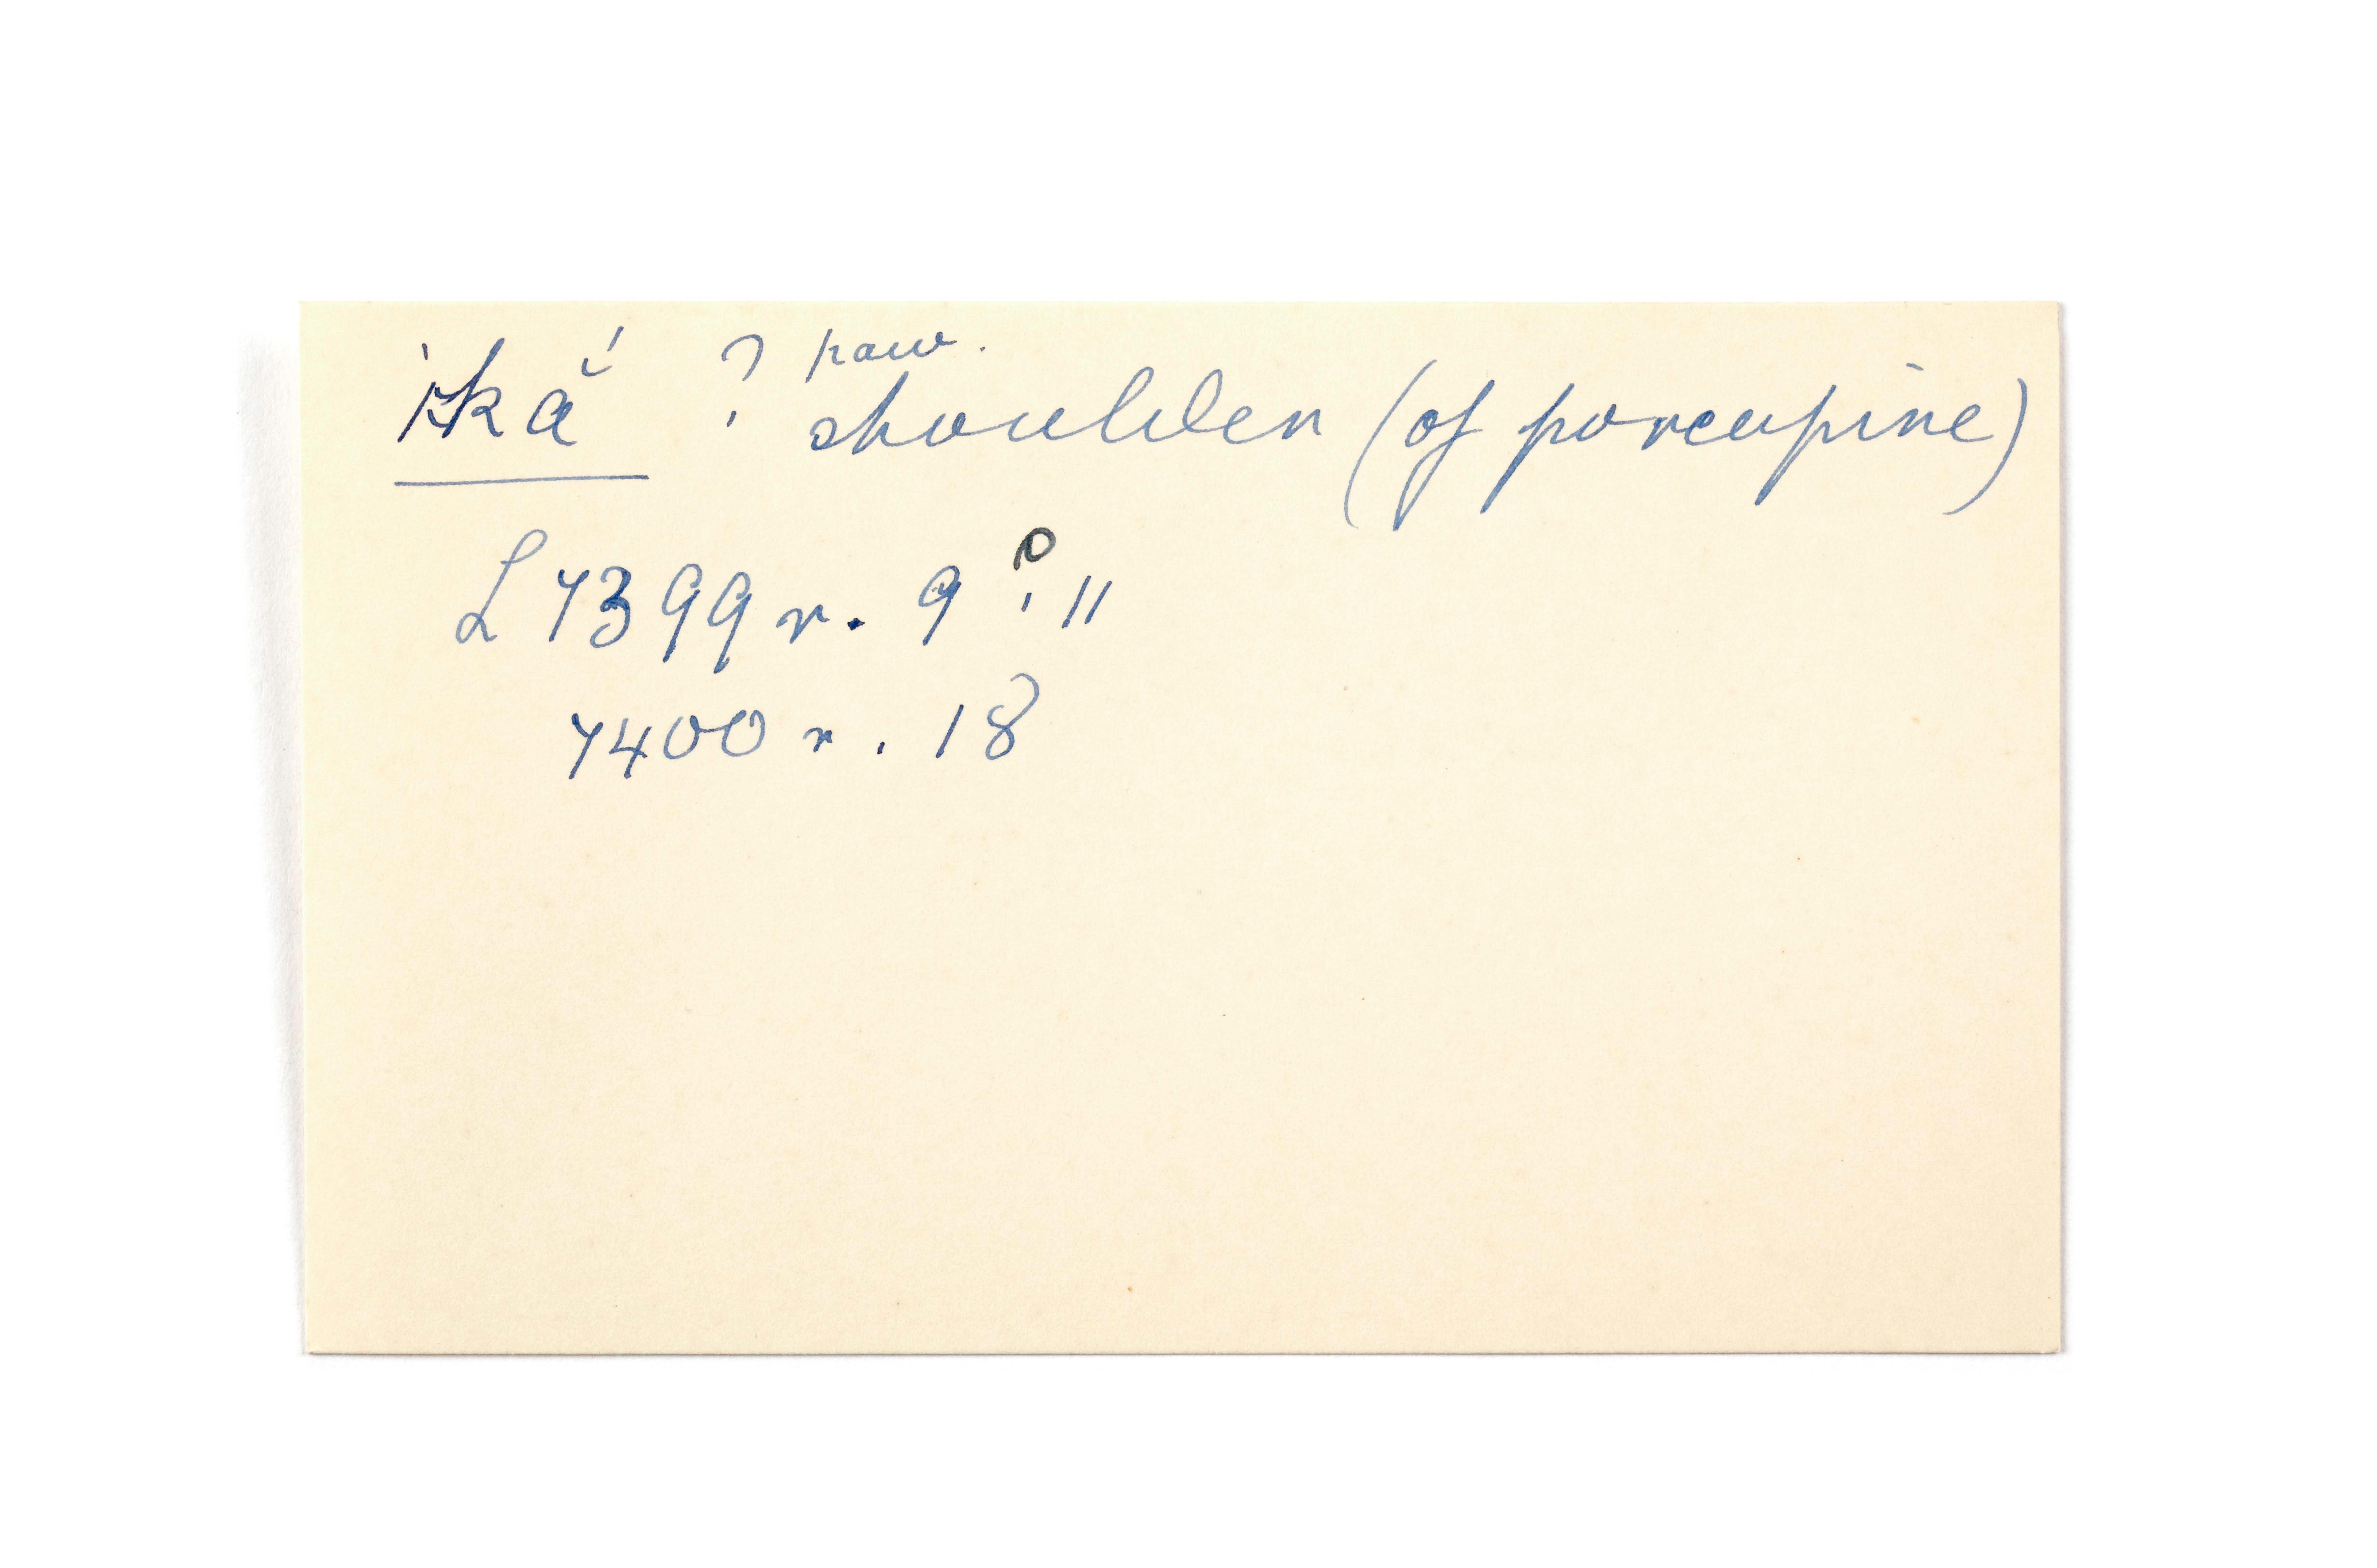 paw.
ĭkắ ? shoulder (of porcupine)
L 7399 r. 9 ? 11
7400 r. 18